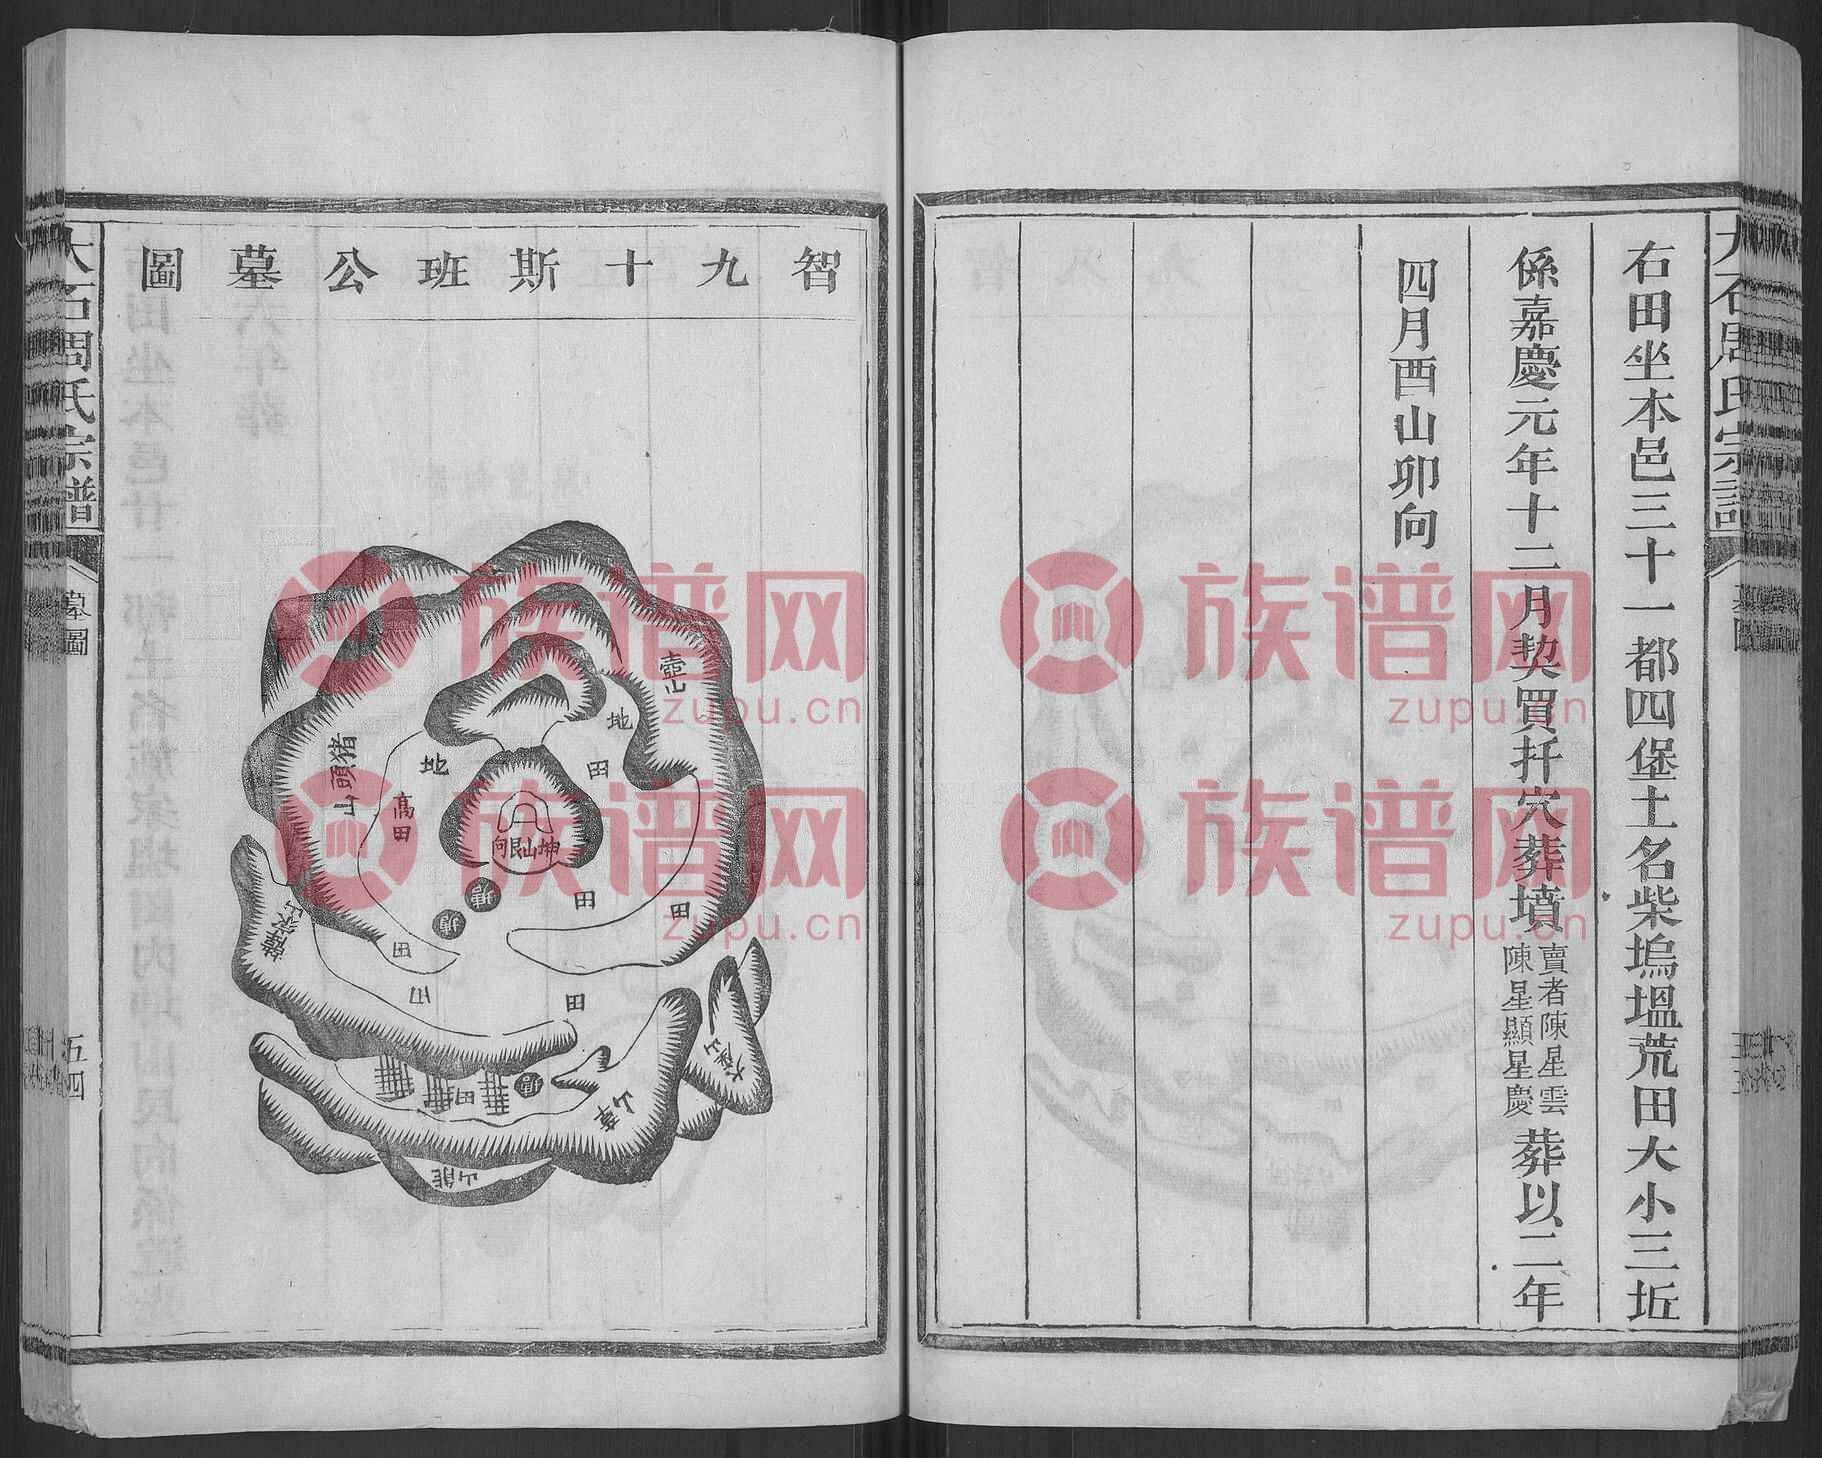 大石周氏宗譜
墓圖
右田坐本邑三十一都四堡土名柴塢塭荒田大小三坵
係嘉慶元年十二月契買扦穴葬墳賣者陳星雲陳星顯星慶葬以二年
四月酉山卯向
智九十斯班公墓圖
壺山
地
田
地
豬頭山
高田
坤山艮向
塘
塘
田
田
田
田
田
塘
草山
熊山
大石周氏宗譜
墓圖
五四
族谱网
zupu.cn
族谱网
zupu.cn
族谱网
zupu.cn
族谱网
zupu.cn